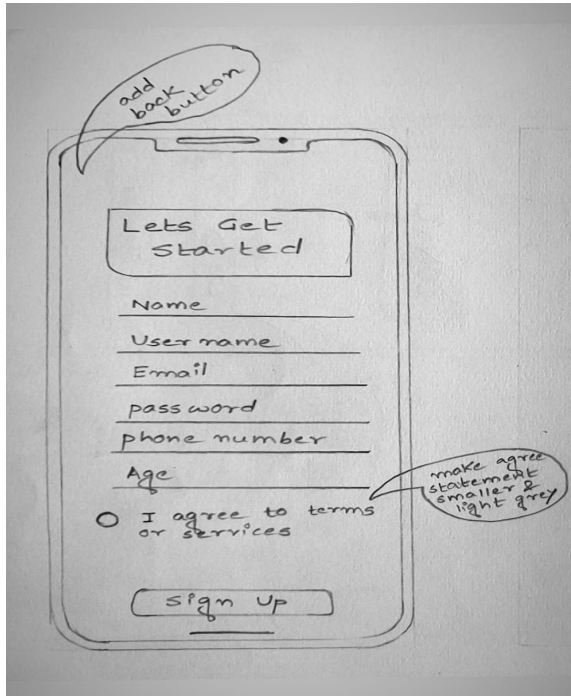 add
back
button
Lets Get
Started
Name
User name
Email
pass word
phone number
Age
make agree
statement
smaller &
light grey
I agree to terms
or services
Sign Up